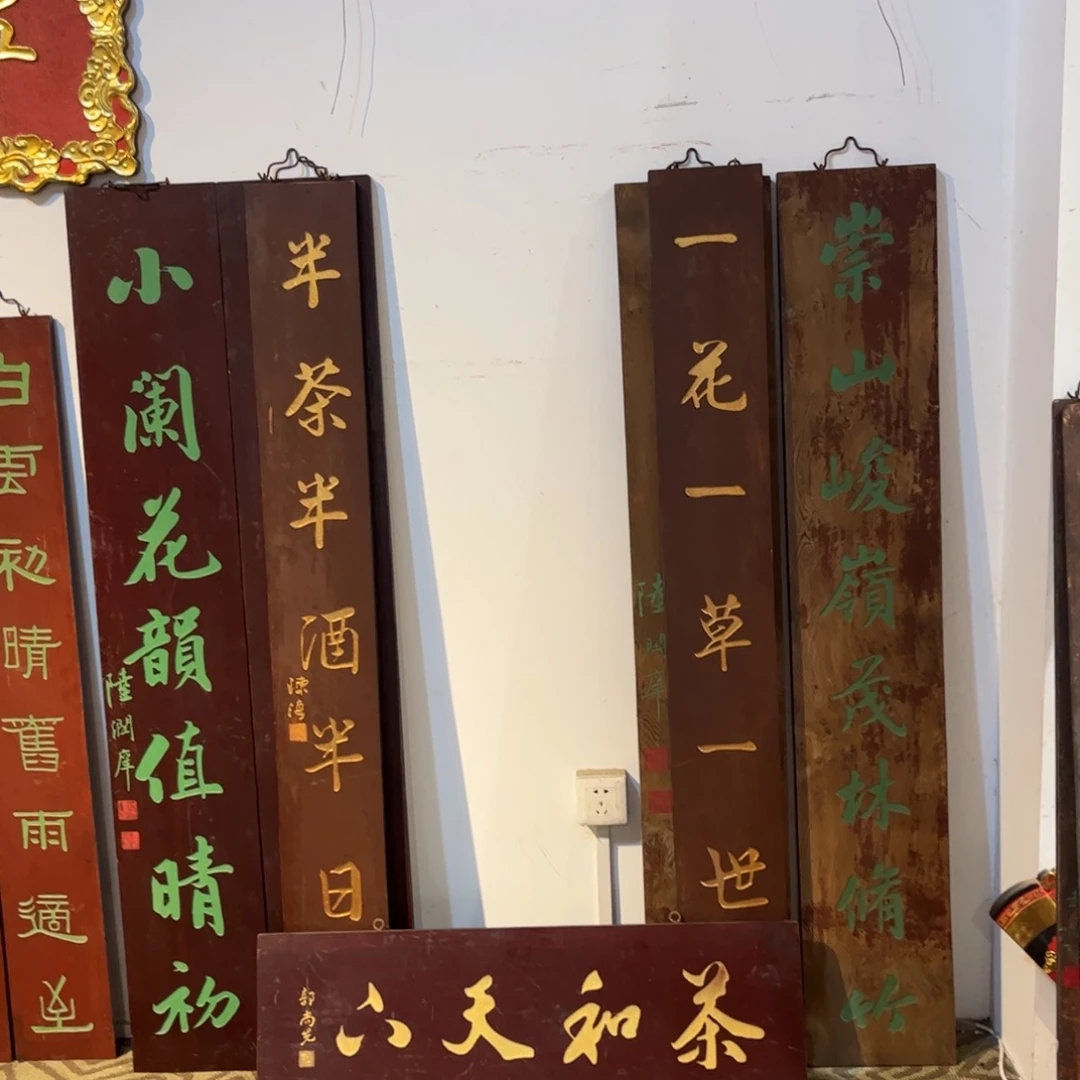 白雲初晴舊雨適至
小瀾花韻值晴初
陸潤庠
半茶半酒半日
一花一草一世
陸潤庠
崇山峻嶺茂林脩竹
茶和天下
郭尚先